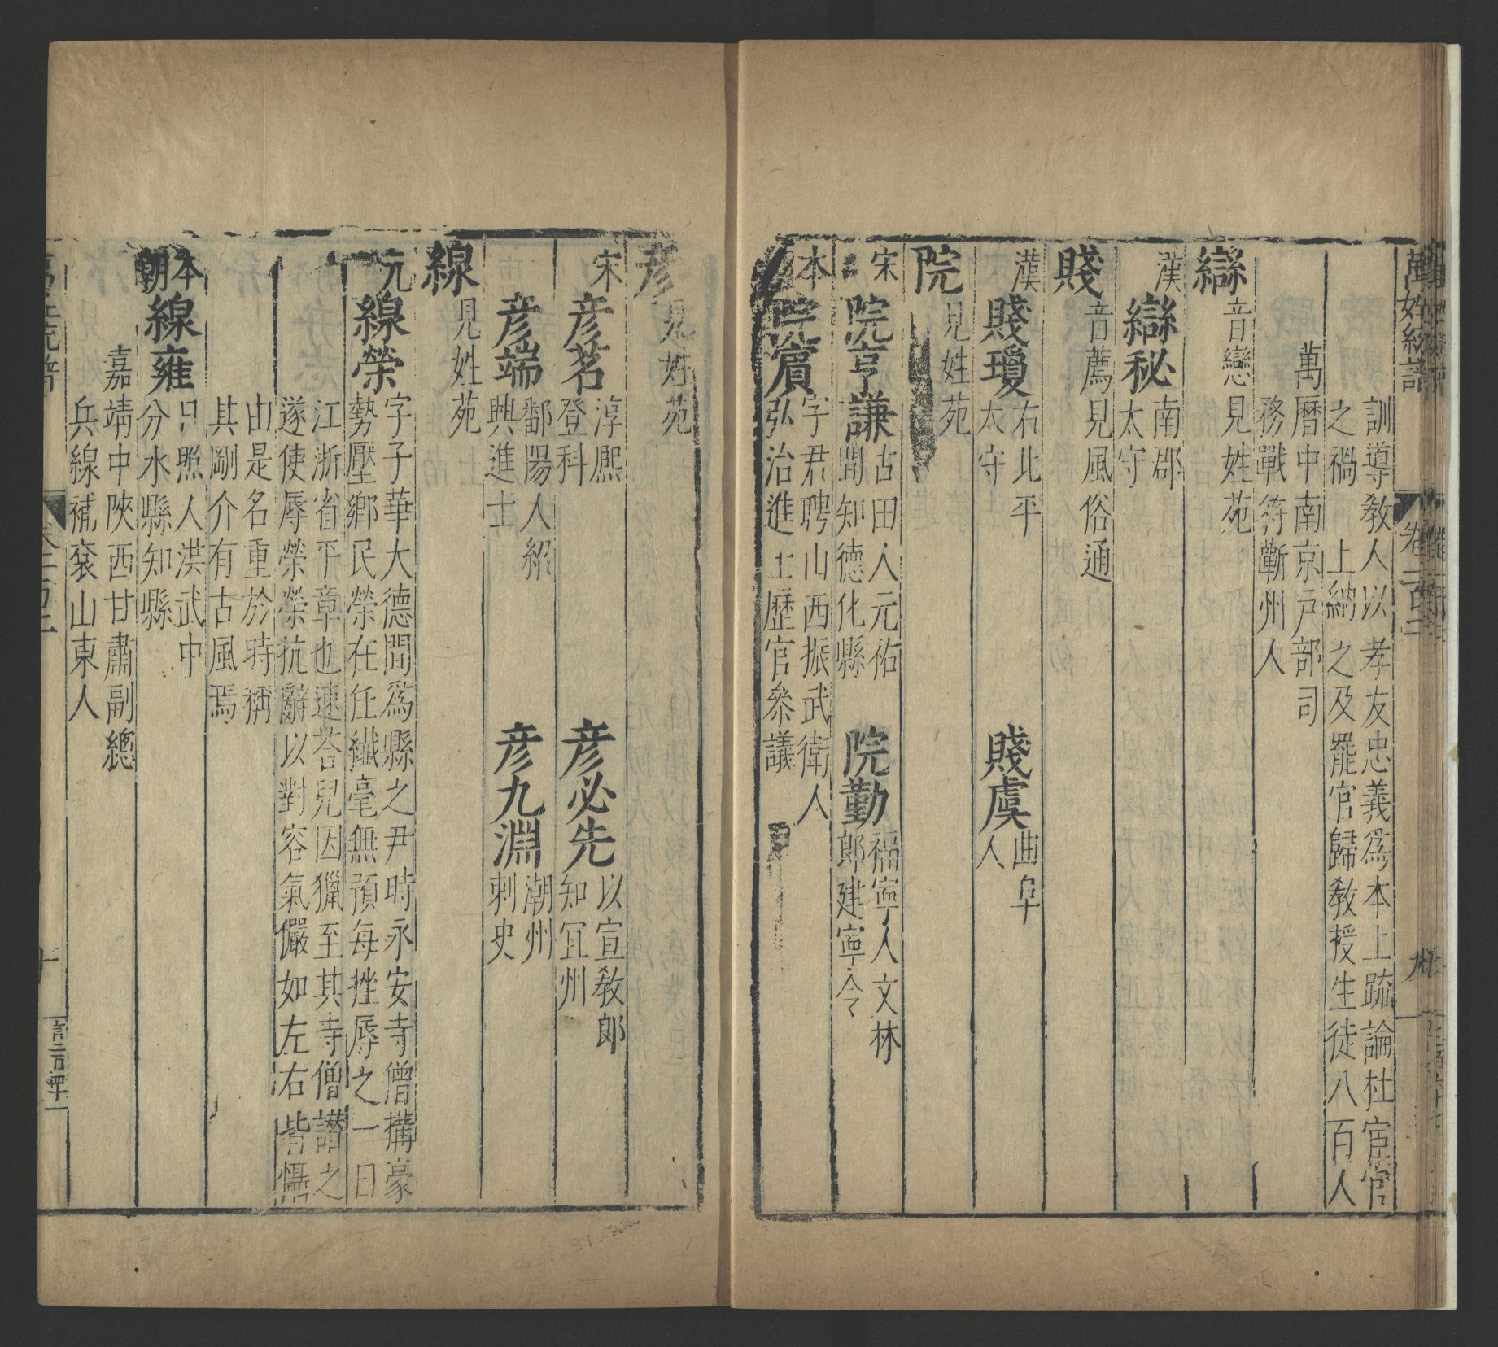 萬姓統譜
卷一百三
九
訓導教人以孝友忠義爲本上疏論杜宦官
之禍上納之及罷官歸教授生徒八百人
萬曆中南京戸部司
務戰符蘄州人
䜌
音戀見姓苑
漢
䜌秘
南郡
太守
賤
音薦見風俗通
漢
賤瓊
右北平
太守
賤虔
曲阜
人
院
見姓苑
宋
院亨謙
古田人元佑
間知德化縣
院勤
福寧人文林
郎建寧令
本
院賔
字君聘山西振武衛人
弘治進士歷官叅議
彦
見姓苑
宋
彦茗
淳熙
登科
彦必先
以宣敎郎
知冝州
彦端
鄱陽人紹
興進士
彦九淵
潮州
刺史
線
見姓苑
元
線榮
字子華大德間爲縣之尹時永安寺僧搆豪
勢壓鄉民榮在任纎毫無預每挫辱之一日
江浙省平章也速荅兒因獵至其寺僧譖之
遂使辱榮榮抗辭以對容氣儼如左右皆懾
由是名重於時稱
其剛介有古風焉
本朝
線雍
日照人洪武中
分水縣知縣
嘉靖中陝西甘肅副總
兵線補衮山東人
十